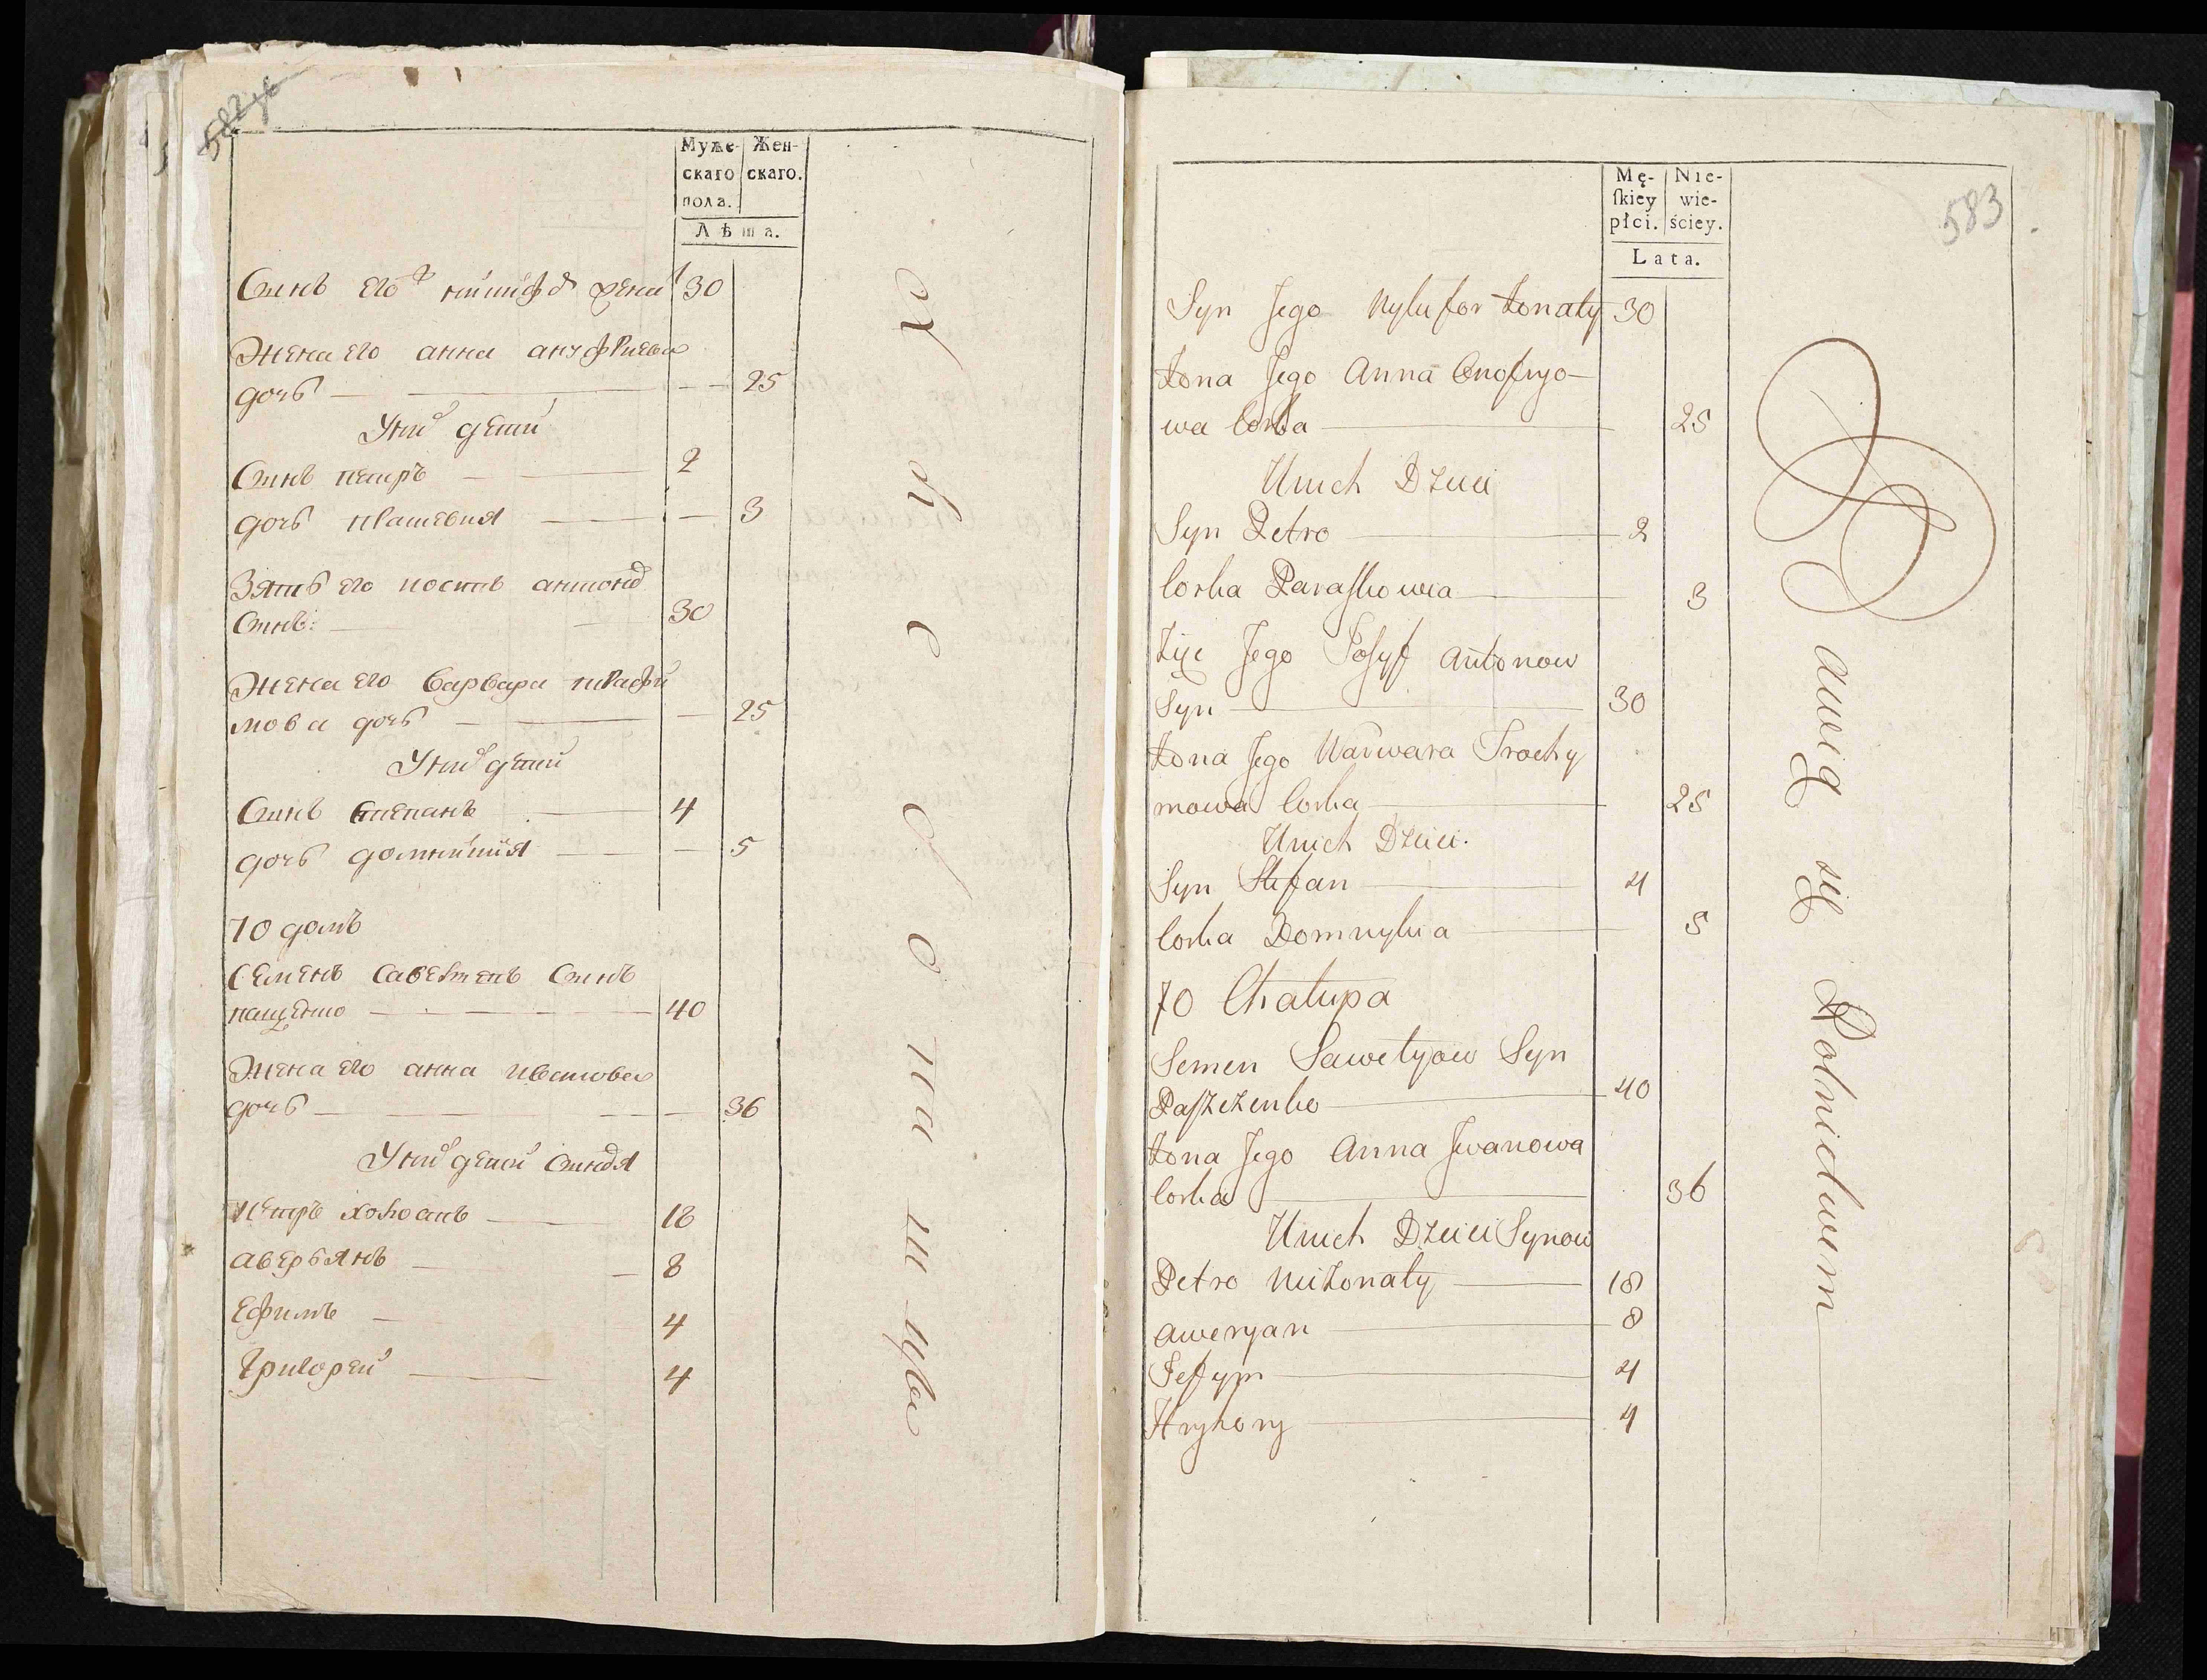 582 об
Муже- Жен-
скаго скаго.
пола.
Лѣта.
Синъ его никифоръ жена 30
Жена его анна ануфриева
дочь 25
У них дети
Синъ петръ 2
дочь параскевия 3
Зять его иосипъ антонов
Синъ: 30
Жена его варвара трафи
мова дочь 25
У них дети
Синъ степанъ 4
дочь домникия 5
70 домъ
Семенъ Савет Синъ
пащенко 40
Жена его анна ивановая
дочь 36
У них детей Синовя
Петръ холость 18
аверъянъ 8
Ефимъ 4
Григорей 4
583
Mę- Nie-
ſkiey wie-
płci. ściey.
Lata.
Syn Jego Nykyfor żonaty 30
żona Jego Anna Onofryo-
wa Corka 25
Unich Dzieci
Syn Petro 2
Corka Paraskowia 3
Zięć Jego Josyf Antonow
Syn 30
żona Jego Warwara Trochy
mowa Corka 25
Unich Dzieci.
Syn Stefan 4
Corka Domnykia 5
70 Chałupa
Semen Sawetyow Syn
Paszczenko 40
żona Jego Anna Jwanowa
Corka 36
Unich Dzieci Synow
Petro Nieżonaty 18
Aweryan 8
Jefym 4
Hryhory 4
Bawią się Rolnictwem